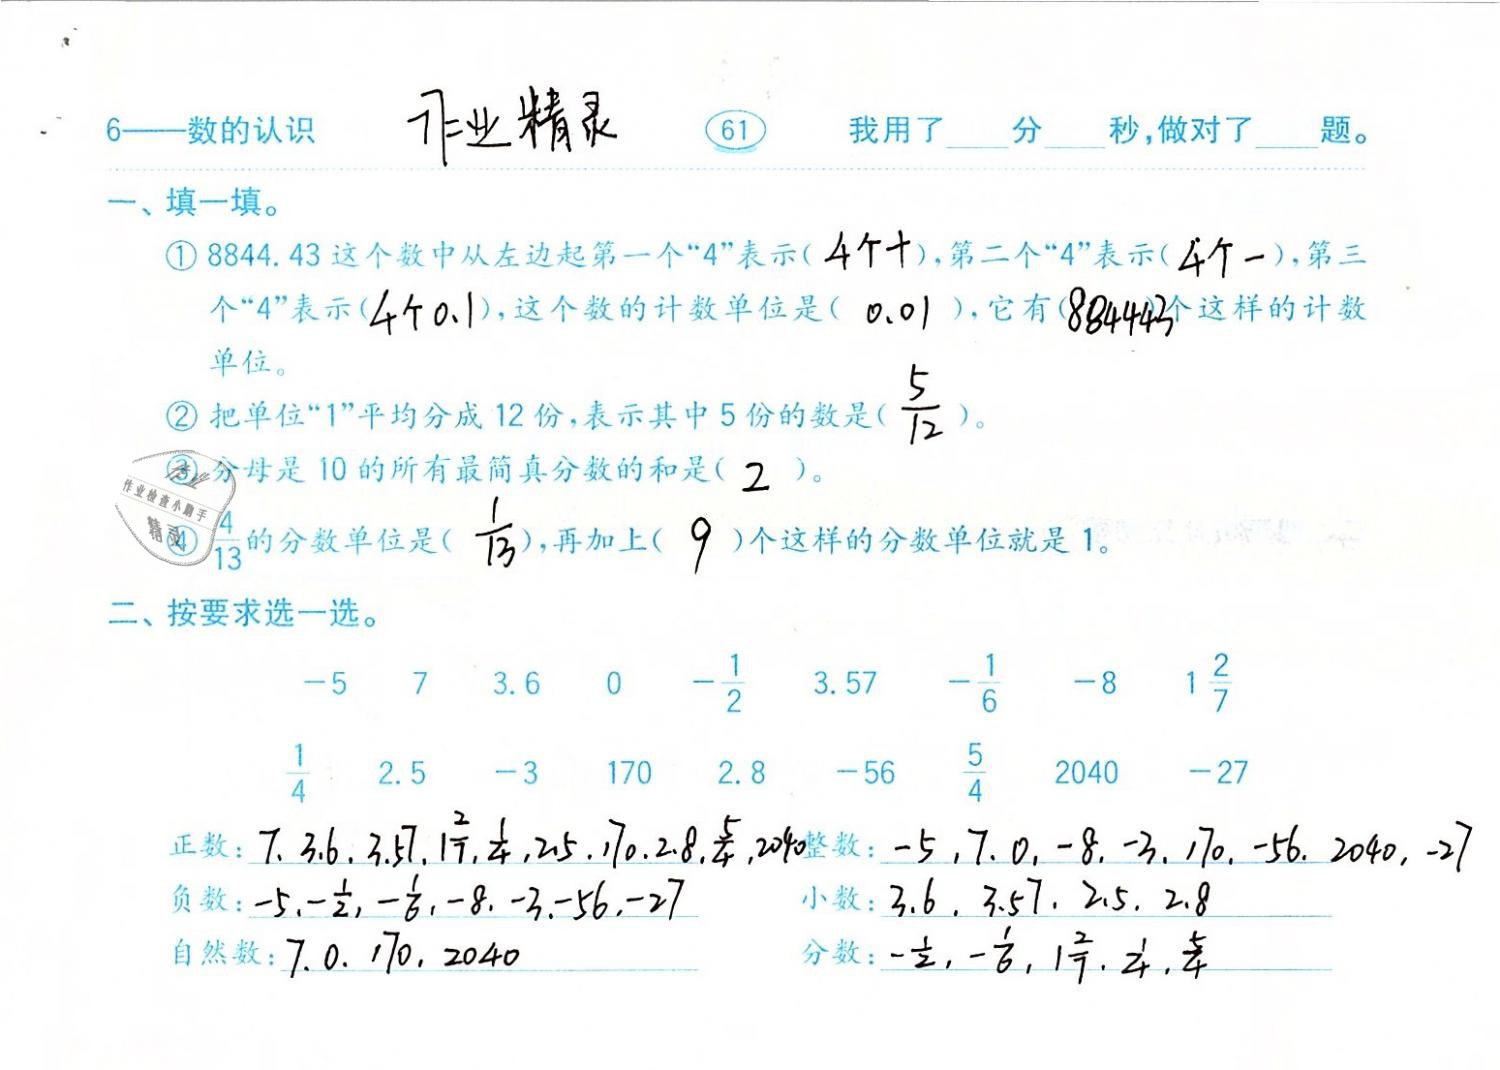 6——数的认识 作业精灵 61 我用了____分____秒,做对了____题。
一、填一填。
① 8844.43 这个数中从左边起第一个“4”表示( 4个十 ),第二个“4”表示( 4个一 ),第三
个“4”表示( 4个0.1 ),这个数的计数单位是( 0.01 ),它有( 884443 )个这样的计数
单位。
② 把单位“1”平均分成 12 份,表示其中 5 份的数是( 5/12 )。
③ 分母是 10 的所有最简真分数的和是( 2 )。
作业检查小助手
精灵
④ 4/13 的分数单位是( 1/13 ),再加上( 9 )个这样的分数单位就是 1。
二、按要求选一选。
-5 7 3.6 0 -1/2 3.57 -1/6 -8 1 2/7
1/4 2.5 -3 170 2.8 -56 5/4 2040 -27
正数: 7. 3.6. 3.57. 1 2/7. 1/4, 2.5. 170. 2.8. 5/4, 2040 整数: -5, 7. 0, -8. -3. 170. -56. 2040, -27
负数: -5, -1/2, -1/6, -8. -3. -56. -27 小数: 3.6. 3.57. 2.5. 2.8
自然数: 7. 0. 170. 2040 分数: -1/2, -1/6, 1 2/7. 1/4. 5/4